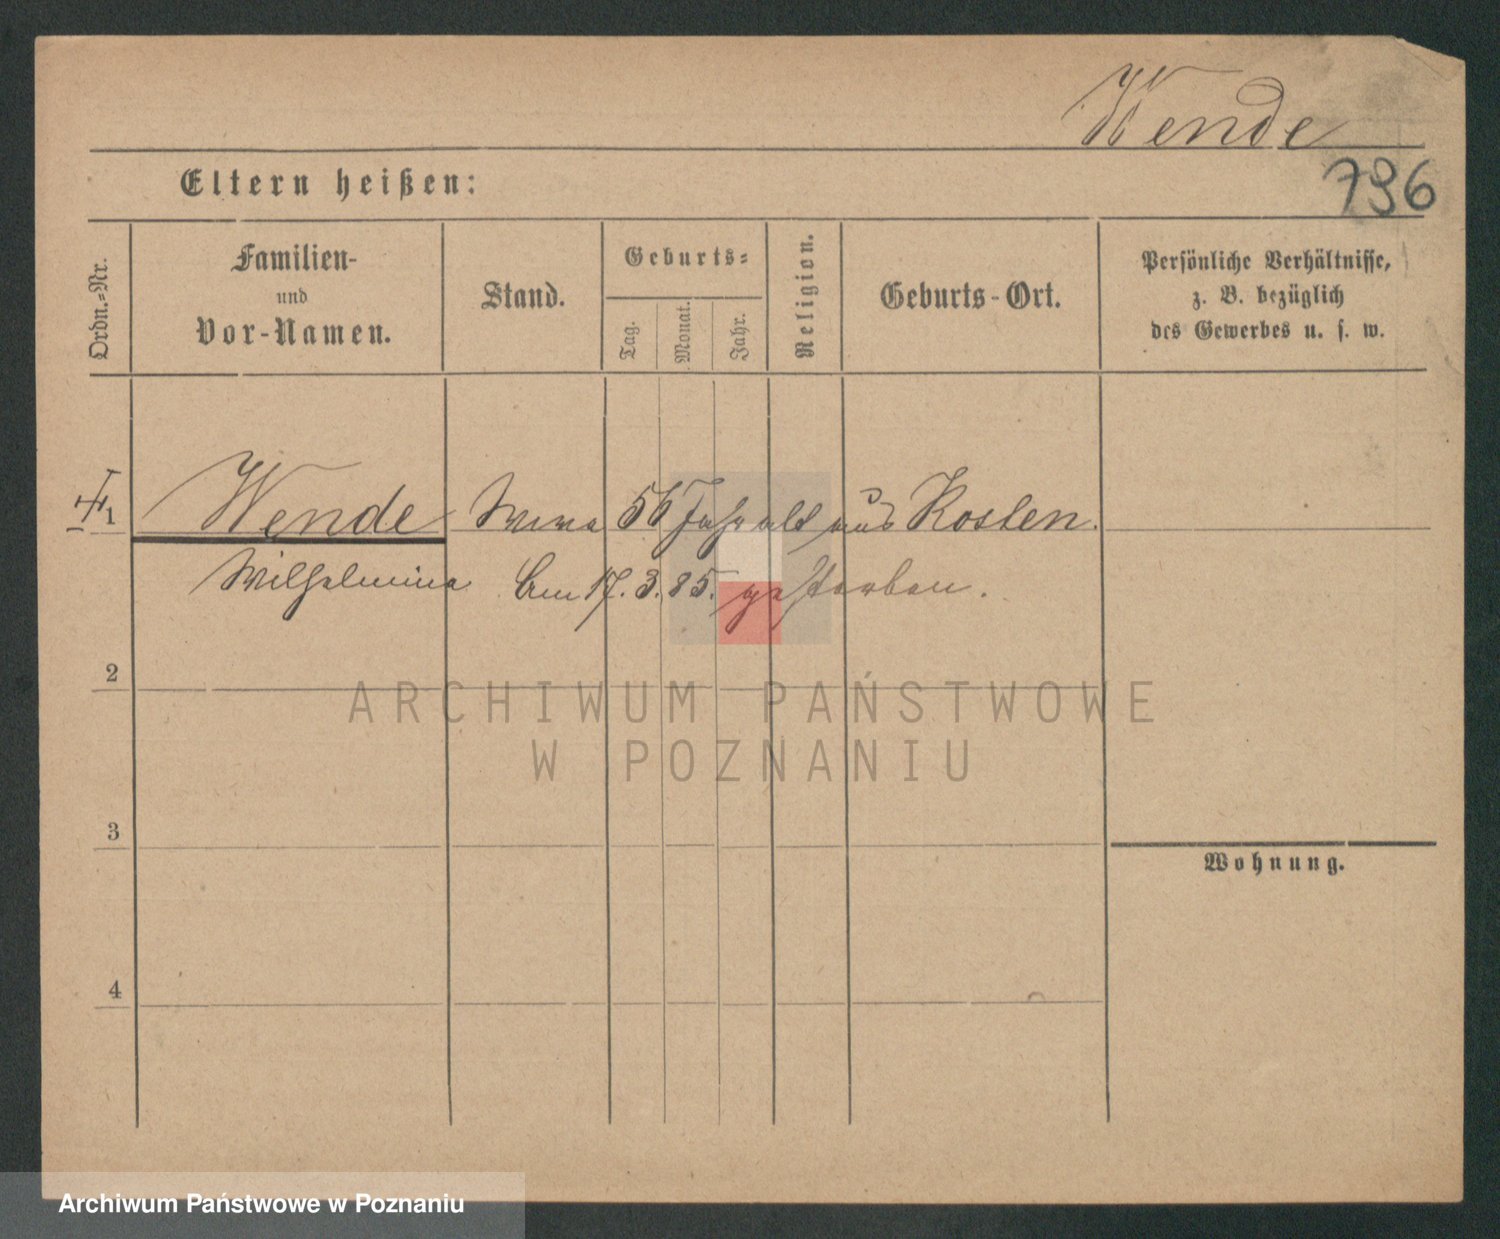 Wende
796
Eltern heißen:
Ordn.=Nr.
Familien-
und
Vor-Namen.
Stand.
Geburts=
Tag.
Monat.
Jahr.
Religion.
Geburts-Ort.
Persönliche Verhältnisse,
z. B. bezüglich
des Gewerbes u. s. w.
1
Wende Wwe 56 Jahr alt aus Kosten.
Wilhelmine Am 17. 3. 85. gestorben.
2
3
4
Wohnung.
ARCHIWUM PAŃSTWOWE
W POZNANIU
Archiwum Państwowe w Poznaniu